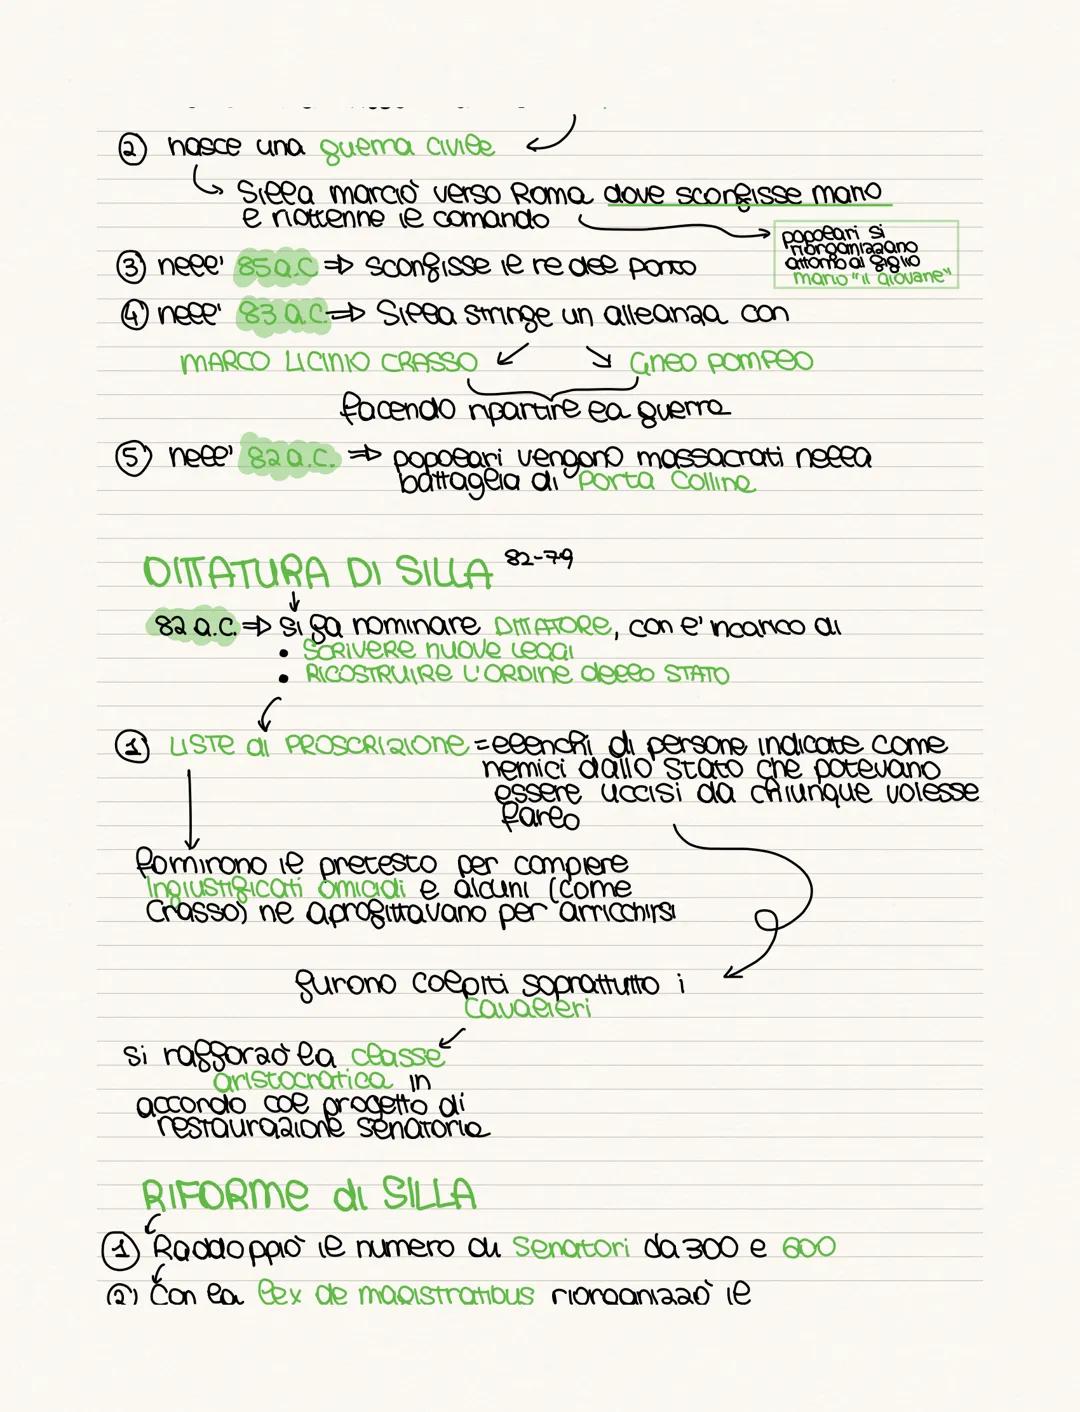 ② nasce una guerra civile
Silla marciò verso Roma dove sconfisse mario
e riottenne il comando
popolari si
riorganizzano
attorno al figlio
mario "il giovane"
③ nell' 85 a.C ⇒ sconfisse il re del ponto
④ nell' 83 a.C. ⇒ Silla stringe un alleanza con
MARCO LICINIO CRASSO Gneo POMPEO
facendo ripartire la guerra
⑤ nell' 82 a.C. ⇒ popolari vengono massacrati nella
battaglia di Porta Colline
DITTATURA DI SILLA 82-79
82 a.C. ⇒ si fa nominare DITTATORE, con l'incarico di
• SCRIVERE nuove Leggi
• RICOSTRUIRE L'ORDINE dello STATO
① LISTE di PROSCRIZIONE = elenchi di persone indicate come
nemici dallo stato che potevano
essere uccisi da chiunque volesse
farlo
Fornirono il pretesto per compiere
Ingiustificati omicidi e alcuni (come
Crasso) ne aprofittavano per arricchirsi
furono colpiti soprattutto i
Cavalieri
si rafforzò la classe
aristocratica in
accordo col progetto di
restaurazione senatoria
RIFORME di SILLA
① Raddoppiò il numero di Senatori da 300 e 600
② Con la lex de magistratibus riorganizzò il